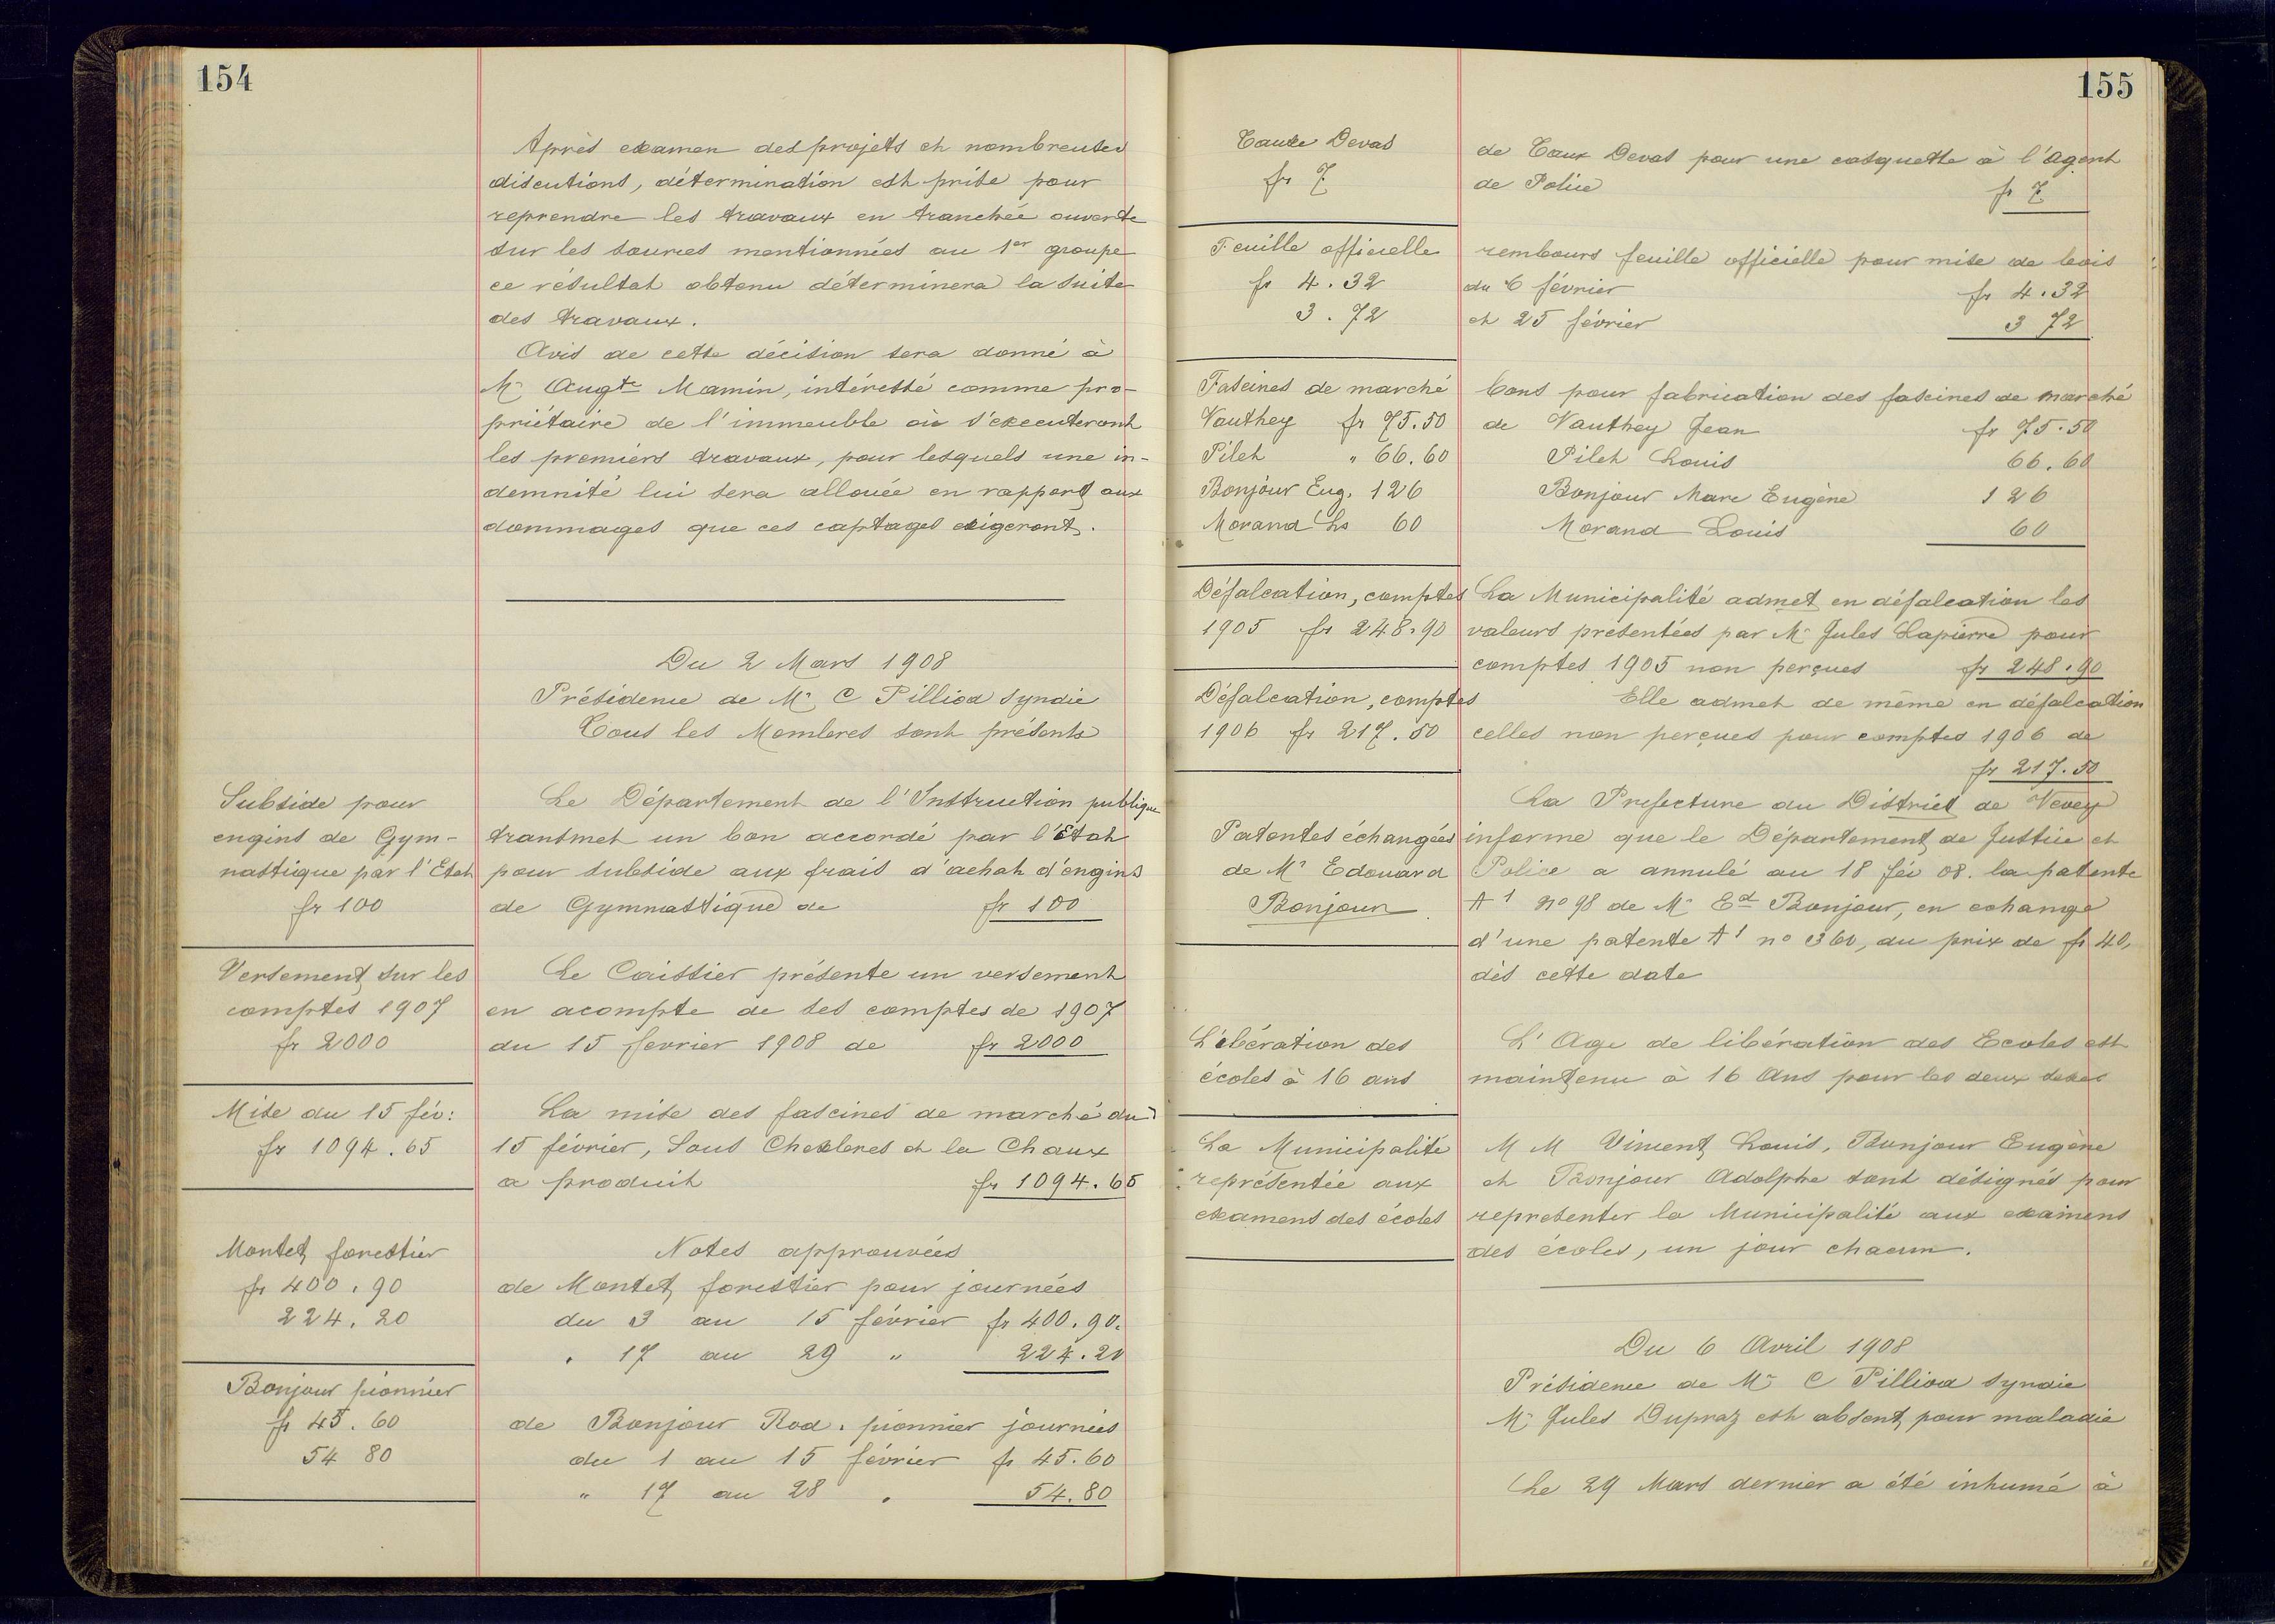 154
Après examen des projets et nombreuses
discutions, détermination est prise pour
reprendre les travaux en tranchée ouverte
sur les sources mentionnées au 1er groupe
ce résultat obtenu déterminera la suite
des travaux.
Avis de cette décision sera donné à
Mr Augte Mamin, intéressé comme pro-
priétaire de l'immeuble où s'executeront
les premiers travaux, pour lesquels une in-
demnité lui sera allouée en rapport aux
dommages que ces captages exigeront.
Du 2 Mars 1908
Présidence de Mr C Pilliod Syndic
Tous les Membres sont présents
Subside pour
engins de Gym-
nastique par l'Etat
fr 100
Le Département de l'Instruction publique
transmet un bon accordé par l'Etat
pour subside aux frais d'achat d'engins
de Gymnastique de fr 100
Versement sur les
comptes 1907
fr 2000
Le Caissier présente un versement
en acompte de ses comptes de 1907
du 15 fevrier 1908 de fr 2000
Mise du 15 fév:
fr 1094.65
La mise des fascines de marché du
15 février, Sous Chexbres et la Chaux
a produit fr 1094.65
Montet forestier
fr 400.90
224.20
Notes approuvées
de Montet forestier pour journées
du 3 au 15 février fr 400.90.
" 17 au 29 " 224.20
Bonjour pionnier
fr 45.60
54 80
de Bonjour Rod. pionnier journées
du 1 au 15 février fr 45.60
" 17 au 28 " 54.80
155
Taux Devas
fr 7
de Taux Devas pour une casquette à l'Agent
de Police fr 7
Feuille officielle
fr 4.32
3.72
rembours feuille officielle pour mise de bois
du 6 février fr 4.32
et 25 février 3 72
Fascines de marché
Vauthey fr 75.50
Pilet " 66.60
Bonjour Eug. 126
Morand Ls 60
bons pour fabrication des fascines de marché
de Vauthey Jean fr 75.50
Pilet Louis 66.60
Bonjour Marc Eugène 126
Morand Louis 60
Défalcation, comptes
1905 fr 248.90
La Municipalité admet en défalcation les
valeurs presentées par Mr Jules Lapierre pour
comptes 1905 non perçues fr 248.90
Défalcation, comptes
1906 fr 217.50
Elle admet de même en défalcation
celles non perçues pour comptes 1906 de
fr 217.50
Patentes échangées
de Mr Edouard
Bonjour
La Prefecture du District de Vevey
informe que le Département de Justice et
Police a annulé au 18 fév 08. la patente
A1 no 98 de Mr Ed Bonjour, en echange
d'une patente A1 no 360, du prix de fr 40,
dès cette date
Libération des
écoles à 16 ans
L'Age de libération des Ecoles est
maintenu à 16 Ans pour les deux sexes
La Municipalité
représentée aux
examens des écoles
M M Viment Louis, Bonjour Eugène
et Bonjour Adolphe sont désignés pour
representer la Municipalité aux examens
des écoles, un jour chacun.
Du 6 Avril 1908
Présidence de Mr C Pilliod Syndic
Mr Jules Dupraz est absent pour maladie
Le 29 Mars dernier a été inhumé à